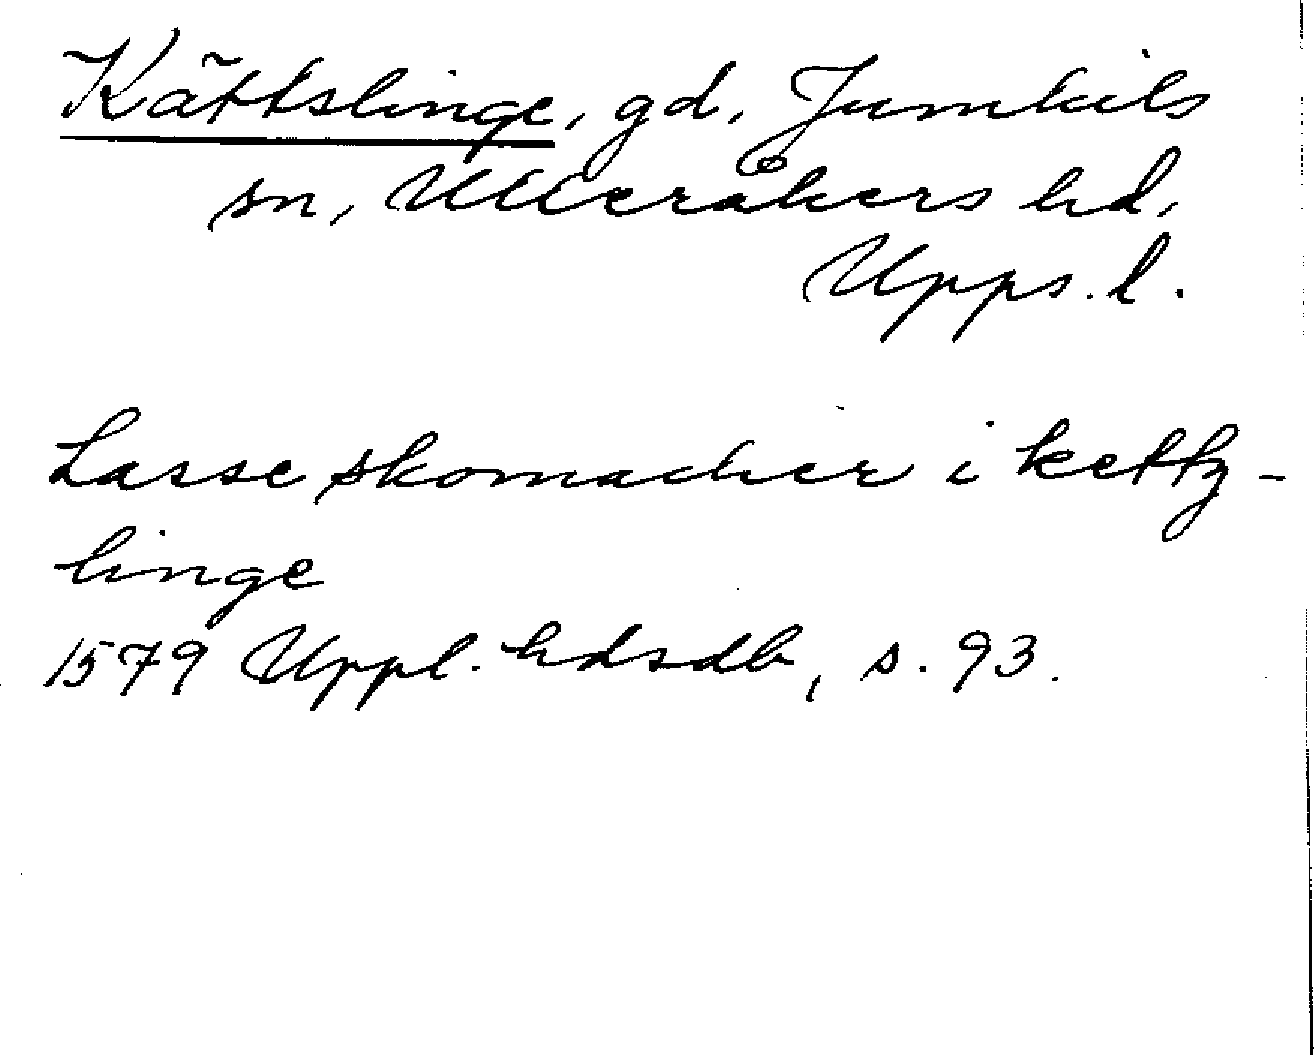 Kättslinge, gd, Jumkils
sn, Ulleråkers hd,
Upps. l.
Lasse skomacher i kettz-
linge
1579 Uppl. hdsdb, s. 93.